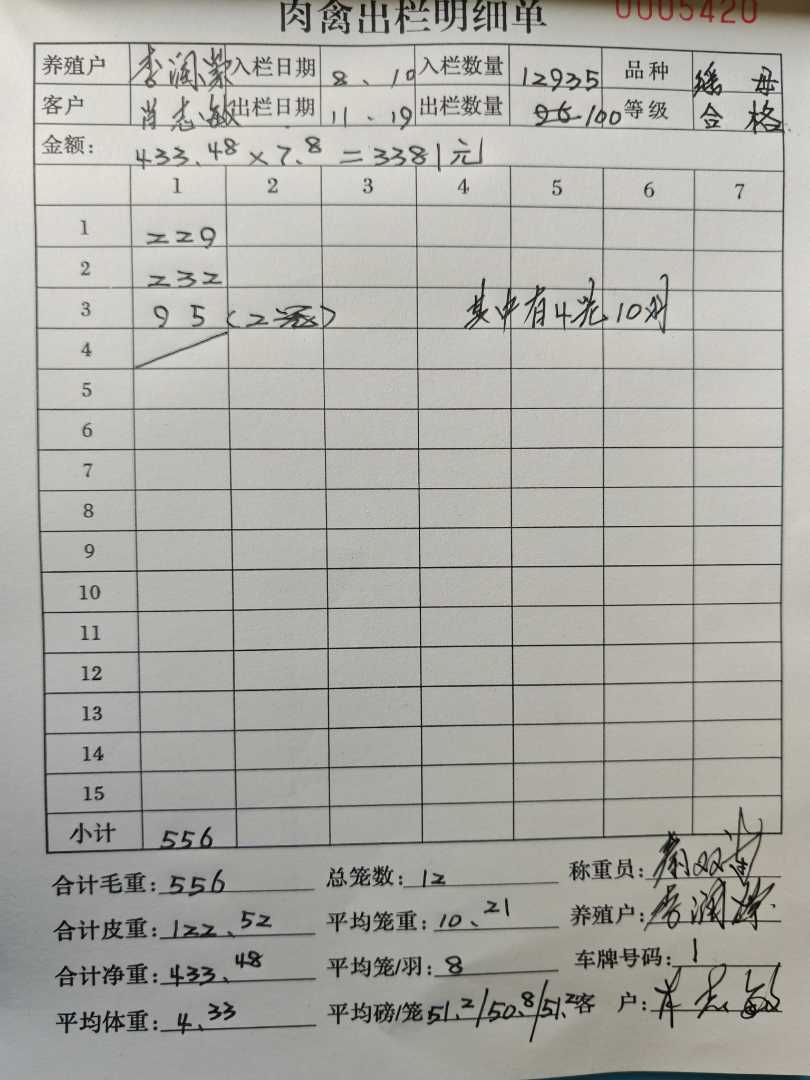 肉禽出栏明细单 0005420
养殖户 李润 入栏日期 8、10 入栏数量 12935 品种 母
客户 肖志敏 出栏日期 11、19 出栏数量 100 等级 合格
金额: 433.48×7.8=3381元
1 2 3 4 5 6 7
1 229
2 232
3 95(2笼) 其中有4笼10只
4
5
6
7
8
9
10
11
12
13
14
15
小计 556
合计毛重:556 总笼数:12 称重员:
合计皮重:122.52 平均笼重:10.21 养殖户:李润
合计净重:433.48 平均笼/羽:8 车牌号码:1
平均体重:4.33 平均磅/笼51.2/50.8/51.2 客 户:肖志敏